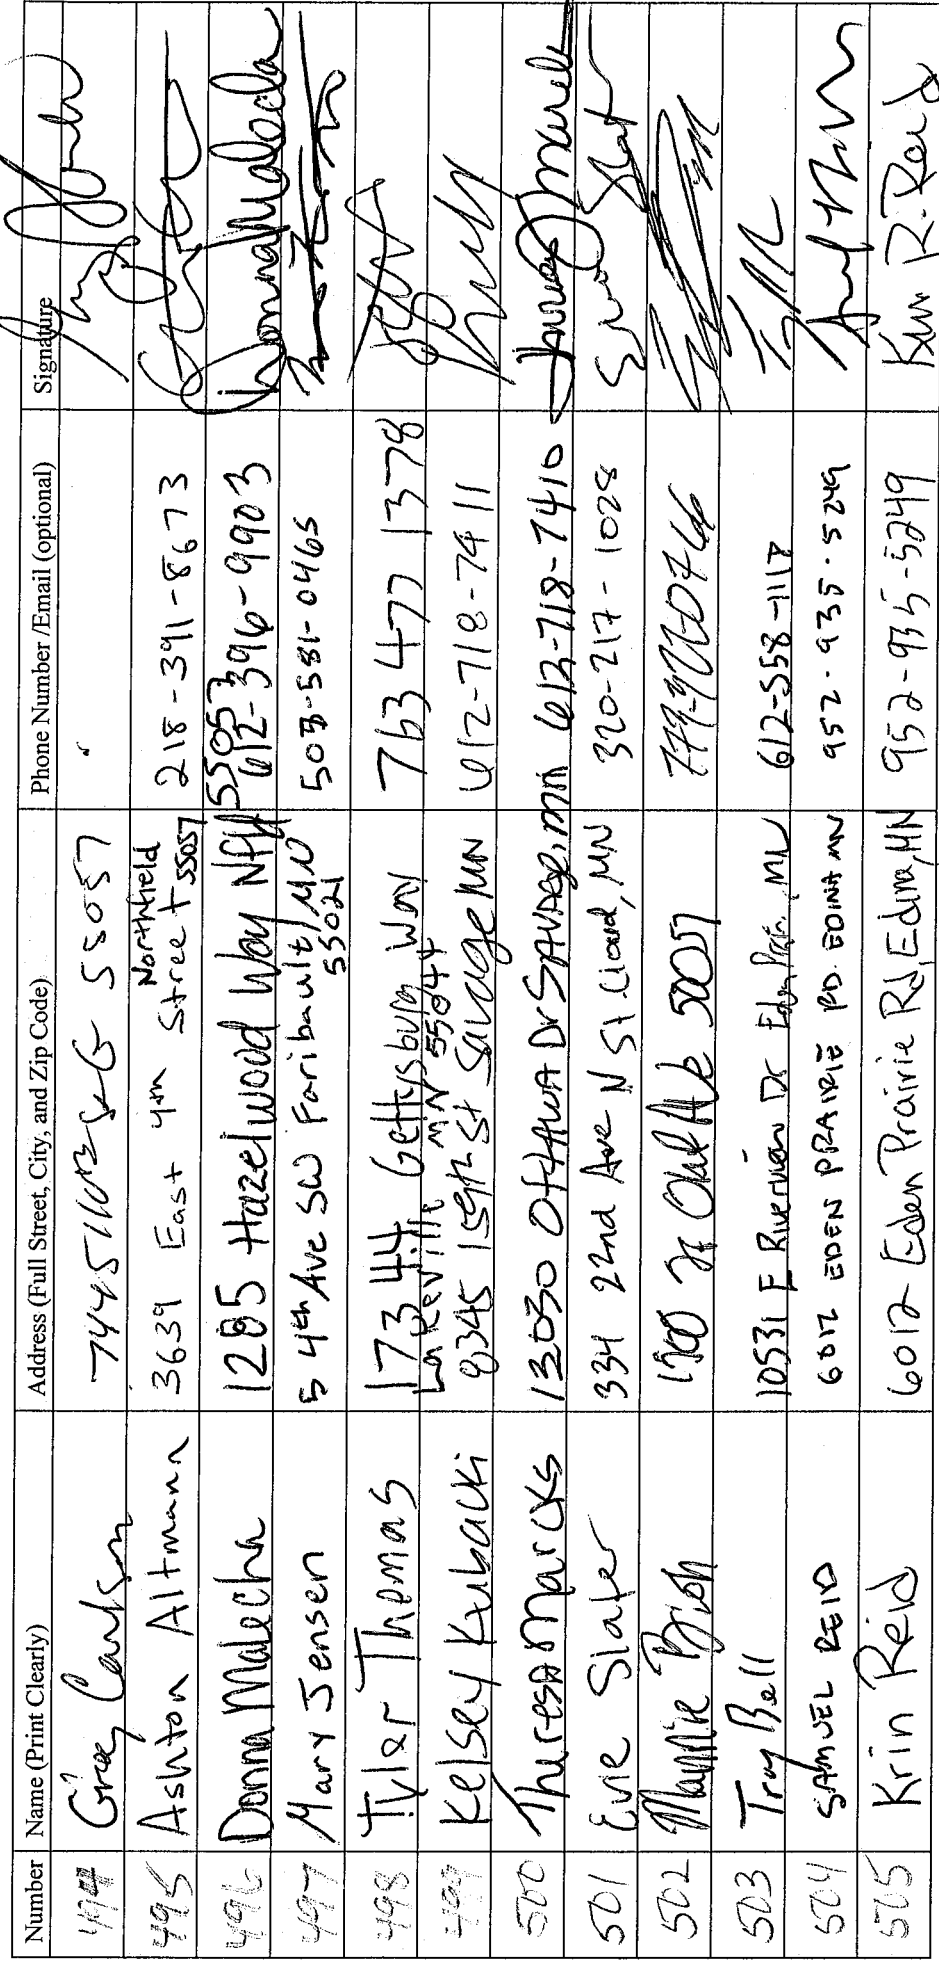 Number Name (Print Clearly) Address (Full Street, City, and Zip Code) Phone Number /Email (optional) Signature
494 Greg Carlson 55057
495 Ashton Altmann 3639 East 4th Street Northfield 55057 218-391-8673
496 Donna Malecha 1205 Hazelwood Way Nfld 55057 612-396-9903 Donna Malecha
497 Mary Jensen 5 4th Ave SW Faribault, MN 55021 503-581-0465
498 Tyler Thomas 17344 Gettysburg Way 763 477 1378
Lakeville MN 55044
499 Kelsey Kubacki 8345 159th St Savage MN 612-718-7411
500 Theresa Marcks 13030 Ottawa Dr Savage, mn 612-718-7410
501 Evie Slater 334 22nd Ave N St. Cloud, MN 320-217-1028
502
503 Troy Bell 10531 E Riverview Dr Eden Prair. MN 612-558-1117
504 SAMUEL REID 6012 EDEN PRAIRIE RD. EDINA MN 952.935.5249
505 Krin Reid 6012 Eden Prairie Rd, Edina, MN 952-935-5249 Krin R. Reid